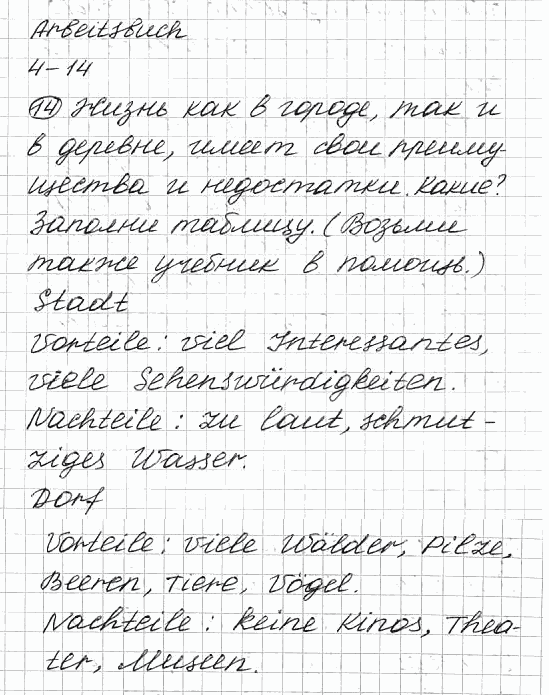 Arbeitsbuch
4-14
14 Жизнь как в городе, так и
в деревне, имеет свои преиму-
щества и недостатки. Какие?
Заполни таблицу. (Возьми
также учебник в помощь.)
Stadt
Vorteile: viel Interessantes,
viele Sehenswürdigkeiten.
Nachteile: zu laut, schmut-
ziges Wasser.
Dorf
Vorteile: viele Wälder, Pilze,
Beeren, Tiere, Vögel.
Nachteile: keine Kinos, Thea-
ter, Museen.